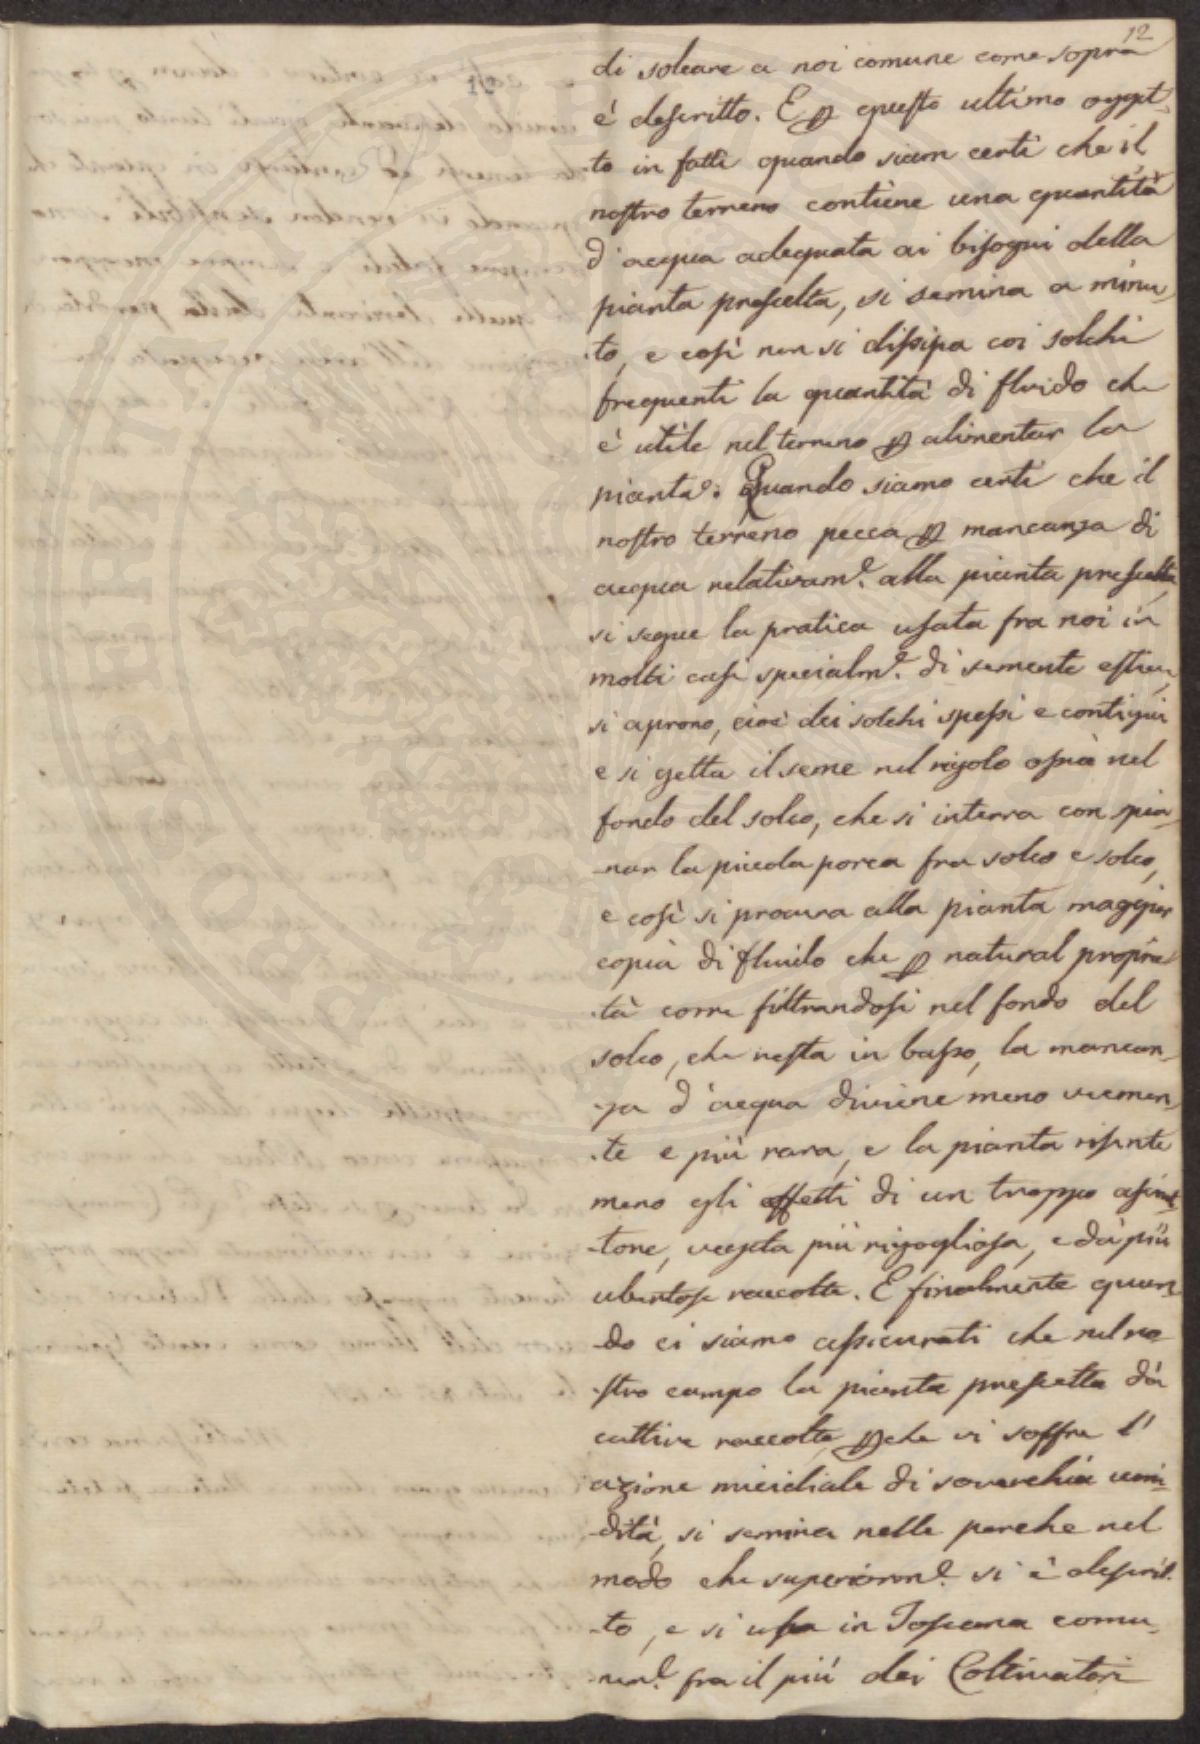 12
di solcare a noi comune come sopra
é descritto. E p questo ultimo ogget-
-to in fatti quando siam certi che il
nostro terreno contiene una quantità
d'acqua adequata ai bisogni della
pianta prescelta, si semina a minu-
-to, e così non si dissipa coi solchi
frequenti la quantità di fluido che
è utile nel terreno p alimentar la
pianta. Quando siamo certi che il
nostro terreno pecca p mancanza di
acqua relativam.e alla pianta prescelta,
si segue la pratica usata fra noi in
molti casi specialm.e di semente estive,
si aprono, cioè dei solchi spessi e contigui
e si getta il seme nel rigolo ossia nel
fondo del solco, che si interra con spia-
-nar la piccola porca fra solco e solco,
e così si procura alla pianta maggior
copia di fluido che p natural proprie-
-tà corre filtrandosi nel fondo del
solco, che resta in basso, la mancan-
-za d'acqua diviene meno veemen-
-te e più rara, e la pianta risente
meno gli effetti di un troppo asciut-
-tore, vegeta più rigogliosa, e dà più
ubertose raccolte. E finalmente quan-
-do ci siamo assicurati che nel no
-stro campo la pianta prescelta dà
cattive raccolte pche vi soffre l'
azione micidiale di soverchia umi-
-dità, si semina nelle porche nel
modo che superiorm.e si è descrit-
-to, e si usa in Toscana comu-
-nem.e fra il più dei Coltivatori